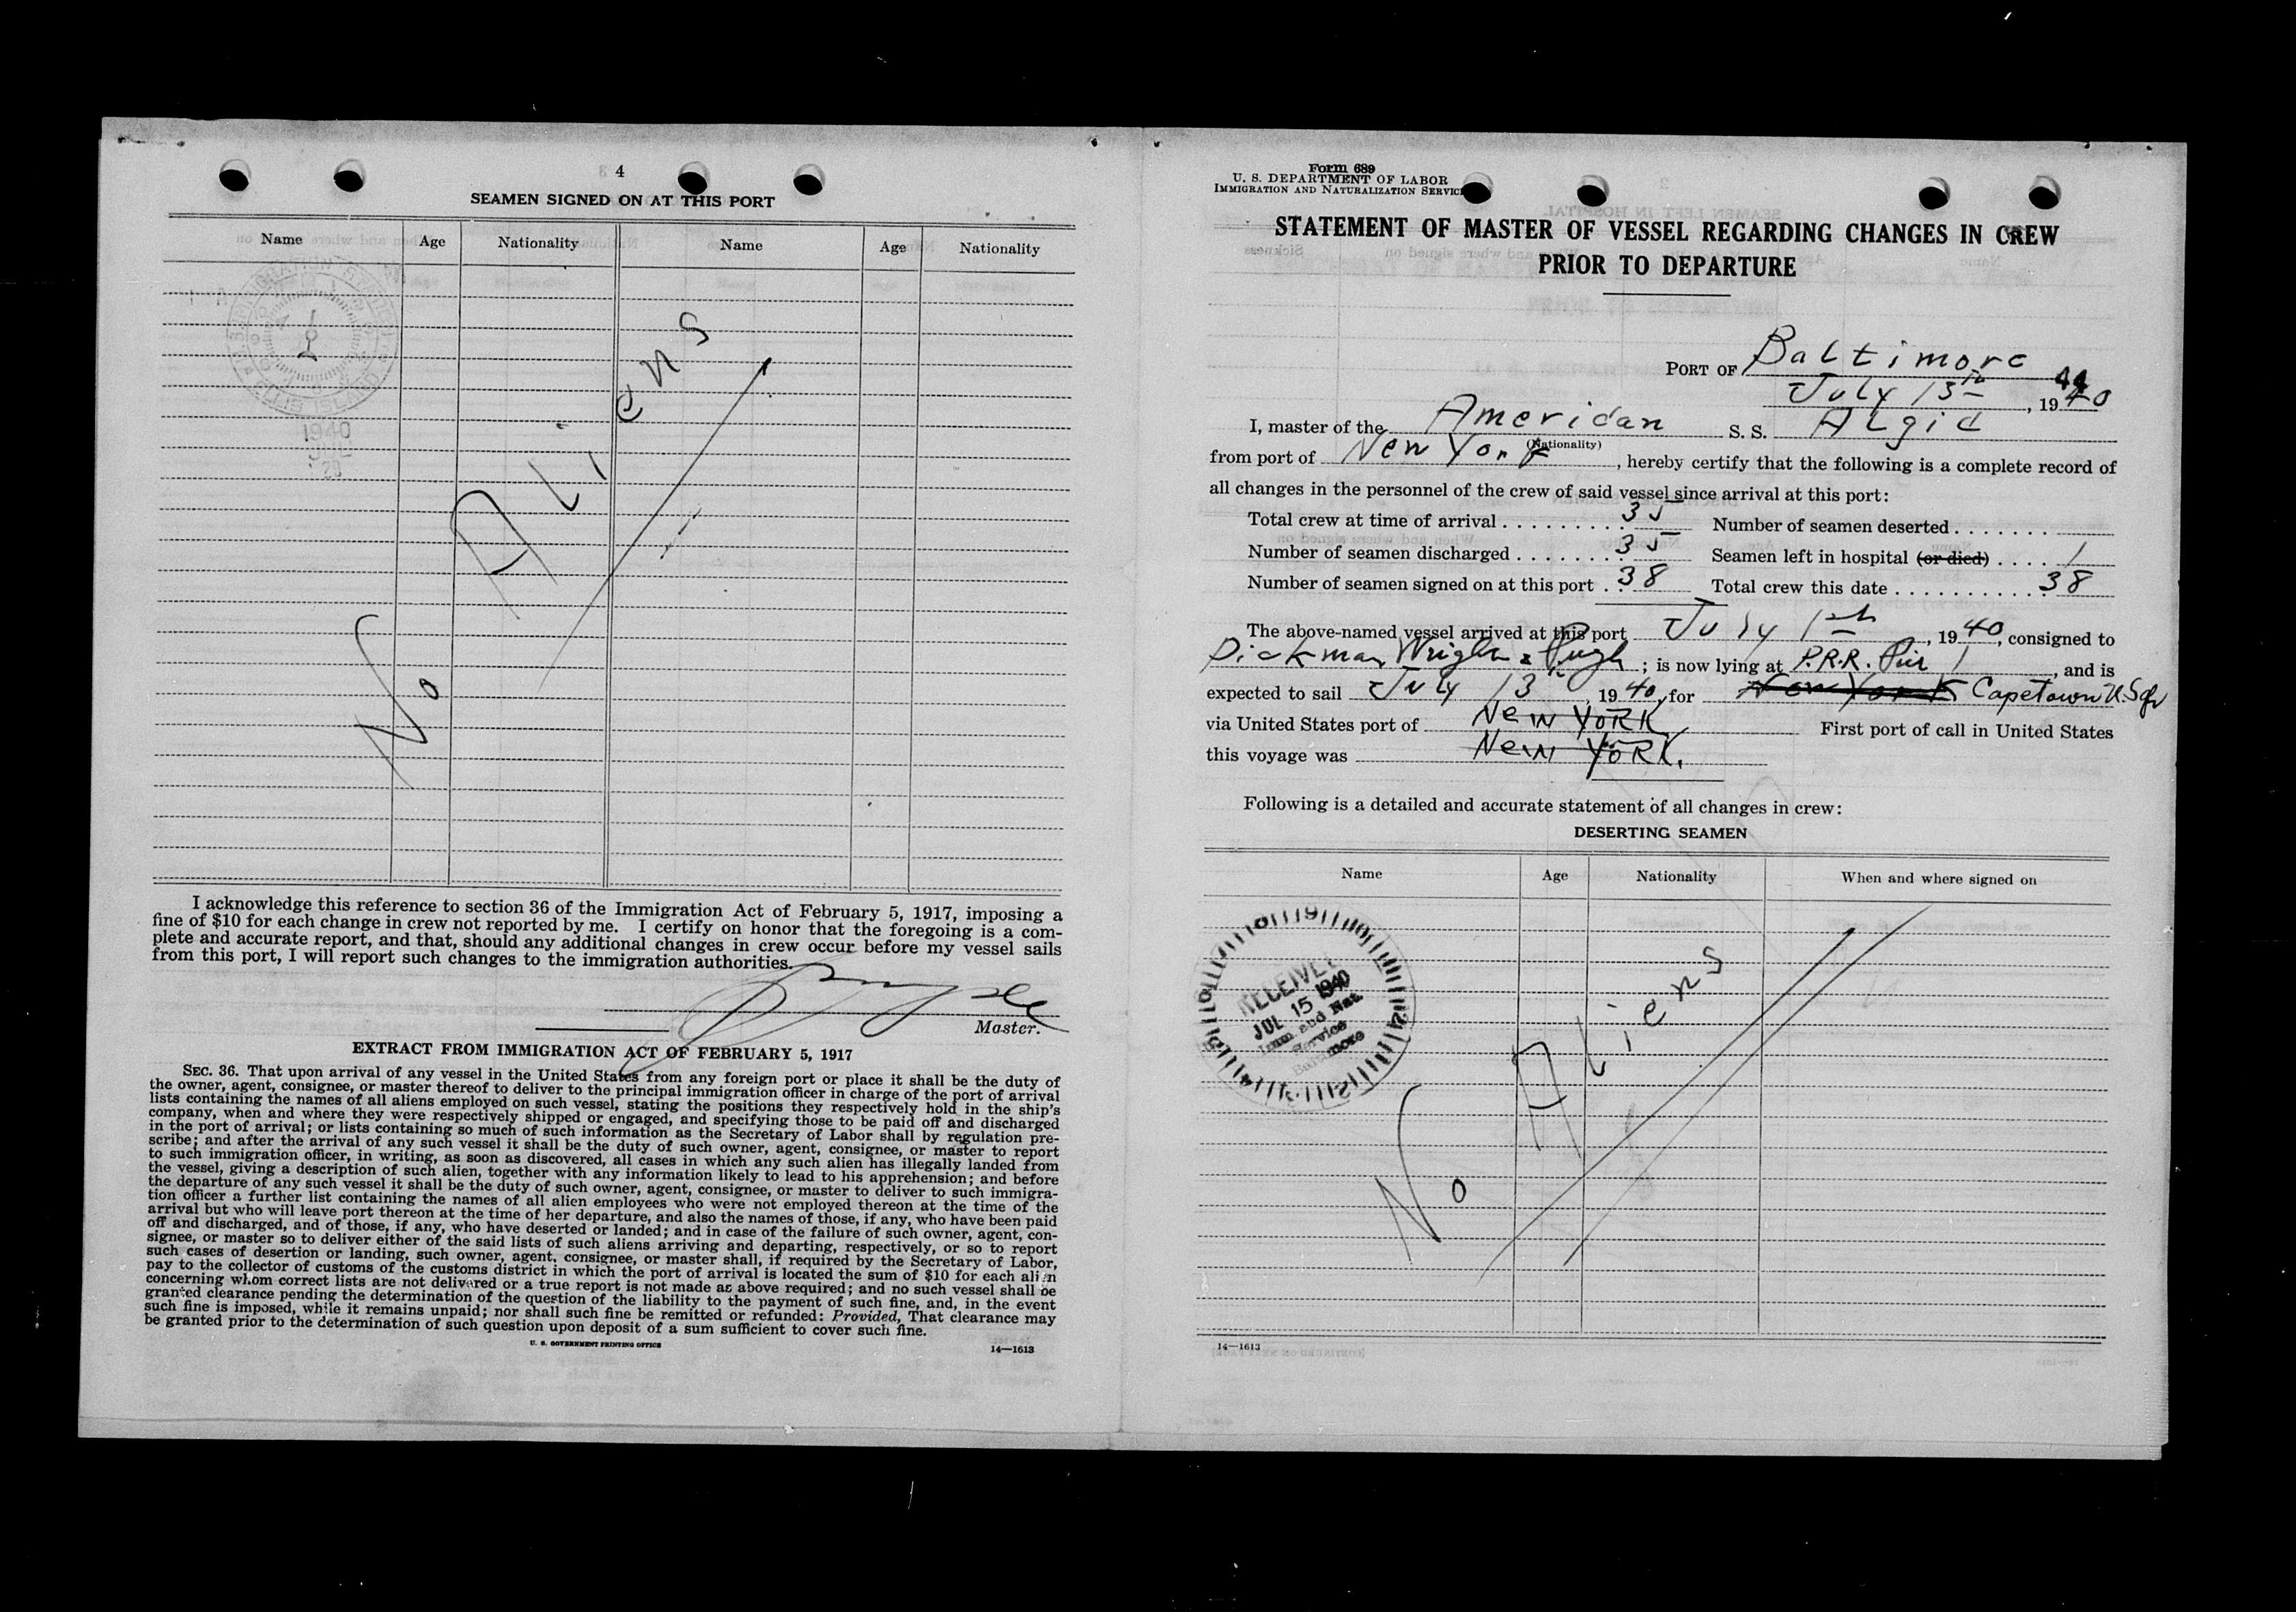 4
SEAMEN SIGNED ON AT THIS PORT
Name Age Nationality Name Age Nationality
No Aliens
1940
I acknowledge this reference to section 36 of the Immigration Act of February 5, 1917, imposing a
fine of $10 for each change in crew not reported by me. I certify on honor that the foregoing is a com-
plete and accurate report, and that, should any additional changes in crew occur before my vessel sails
from this port, I will report such changes to the immigration authorities.
Master.
EXTRACT FROM IMMIGRATION ACT OF FEBRUARY 5, 1917
SEC. 36. That upon arrival of any vessel in the United States from any foreign port or place it shall be the duty of
the owner, agent, consignee, or master thereof to deliver to the principal immigration officer in charge of the port of arrival
lists containing the names of all aliens employed on such vessel, stating the positions they respectively hold in the ship's
company, when and where they were respectively shipped or engaged, and specifying those to be paid off and discharged
in the port of arrival; or lists containing so much of such information as the Secretary of Labor shall by regulation pre-
scribe; and after the arrival of any such vessel it shall be the duty of such owner, agent, consignee, or master to report
to such immigration officer, in writing, as soon as discovered, all cases in which any such alien has illegally landed from
the vessel, giving a description of such alien, together with any information likely to lead to his apprehension; and before
the departure of any such vessel it shall be the duty of such owner, agent, consignee, or master to deliver to such immigra-
tion officer a further list containing the names of all alien employees who were not employed thereon at the time of the
arrival but who will leave port thereon at the time of her departure, and also the names of those, if any, who have been paid
off and discharged, and of those, if any, who have deserted or landed; and in case of the failure of such owner, agent, con-
signee, or master so to deliver either of the said lists of such aliens arriving and departing, respectively, or so to report
such cases of desertion or landing, such owner, agent, consignee, or master shall, if required by the Secretary of Labor,
pay to the collector of customs of the customs district in which the port of arrival is located the sum of $10 for each alien
concerning whom correct lists are not delivered or a true report is not made as above required; and no such vessel shall be
granted clearance pending the determination of the question of the liability to the payment of such fine, and, in the event
such fine is imposed, while it remains unpaid; nor shall such fine be remitted or refunded: Provided, That clearance may
be granted prior to the determination of such question upon deposit of a sum sufficient to cover such fine.
U. S. GOVERNMENT PRINTING OFFICE 14—1613
Form 689
U. S. DEPARTMENT OF LABOR
IMMIGRATION AND NATURALIZATION SERVICE
STATEMENT OF MASTER OF VESSEL REGARDING CHANGES IN CREW
PRIOR TO DEPARTURE
PORT OF Baltimore
July 13th, 1940
I, master of the American S. S. Algic
(Nationality)
from port of New York, hereby certify that the following is a complete record of
all changes in the personnel of the crew of said vessel since arrival at this port:
Total crew at time of arrival . . . . . . . . . 35 Number of seamen deserted . . . . . . .
Number of seamen discharged . . . . . . . . 35 Seamen left in hospital (or died) . . . . 1
Number of seamen signed on at this port . . 38 Total crew this date . . . . . . . . . . . 38
The above-named vessel arrived at this port July 1st, 1940, consigned to
Dickman, Wright & Pugh; is now lying at P.R.R. Pier 1, and is
expected to sail July 13th 1940, for New York Capetown U.S.Afr
via United States port of New York First port of call in United States
this voyage was New York.
Following is a detailed and accurate statement of all changes in crew:
DESERTING SEAMEN
Name Age Nationality When and where signed on
RECEIVED
JUL 15 1940
Imm. and Nat.
Service
Baltimore
No Aliens
14—1613